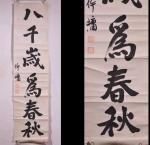 八千歲爲春秋
歲爲春秋